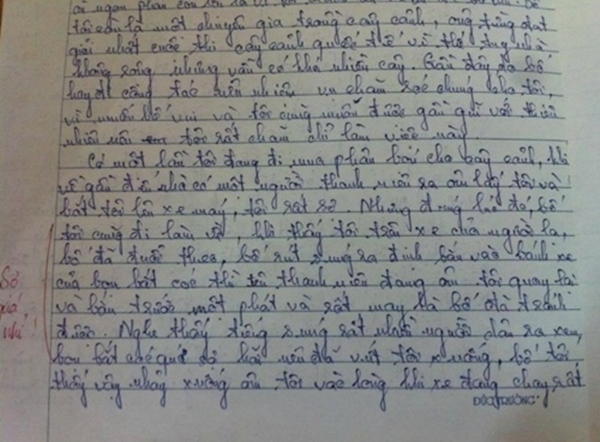 tôi còn là một chuyên gia trong cây cảnh, ông từng đạt
giải nhất cuộc thi cây cảnh quốc tế vì thế tuy nhà
không rộng, nhưng vẫn có khá nhiều cây. Gần đây do bố
hay đi công tác nên nhiệm vụ chăm sóc chúng cho tôi,
vì muốn bố vui và tôi cũng muốn được gần gũi với thiên
nhiên nên tôi rất chăm chỉ làm việc này.
Có một lần tôi đang đi mua phân bón cho cây cảnh, khi
về gần đến nhà có một người thanh niên ra ôm lấy tôi và
bắt tôi lên xe máy, tôi rất sợ. Nhưng đúng lúc đó, bố
tôi cũng đi làm về, khi thấy tôi trên xe của người lạ,
bố đã đuổi theo, bố rút súng ra định bắn vào bánh xe
của bọn bắt cóc thì tên thanh niên đang ôm tôi quay lại
và bắn trước một phát và rất may là bố đã tránh
được. Nghe thấy tiếng súng rất nhiều người dân ra xem,
bọn bắt cóc quá sợ hãi nên đã vứt tôi xuống, bố tôi
thấy vậy nhảy xuống ôm tôi vào lòng khi xe đang chạy rất
ĐỨC TRƯỜNG
Sợ
quá
nhỉ!